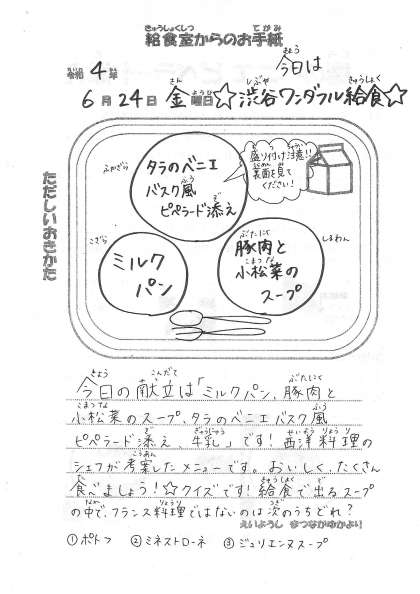 給食室からのお手紙
令和4年
今日は
6月24日 金曜日☆渋谷ワンダフル給食☆
ただしいおきかた
ふかざら
タラのベニエ
バスク風
ピペラード添え
盛り付け注意!!
裏面を見て
ください!
こざら
ミルク
パン
しるわん
豚肉と
小松菜の
スープ
今日の献立は「ミルクパン、豚肉と
小松菜のスープ、タラのベニエバスク風
ピペラード添え、牛乳」です！西洋料理の
シェフが考案したメニューです。おいしく、たくさん
食べましょう！☆クイズです！給食で出るスープ
の中で、フランス料理ではないのは次のうちどれ？
えいようし まつながゆかより
①ポトフ ②ミネストローネ ③ジュリエンヌスープ